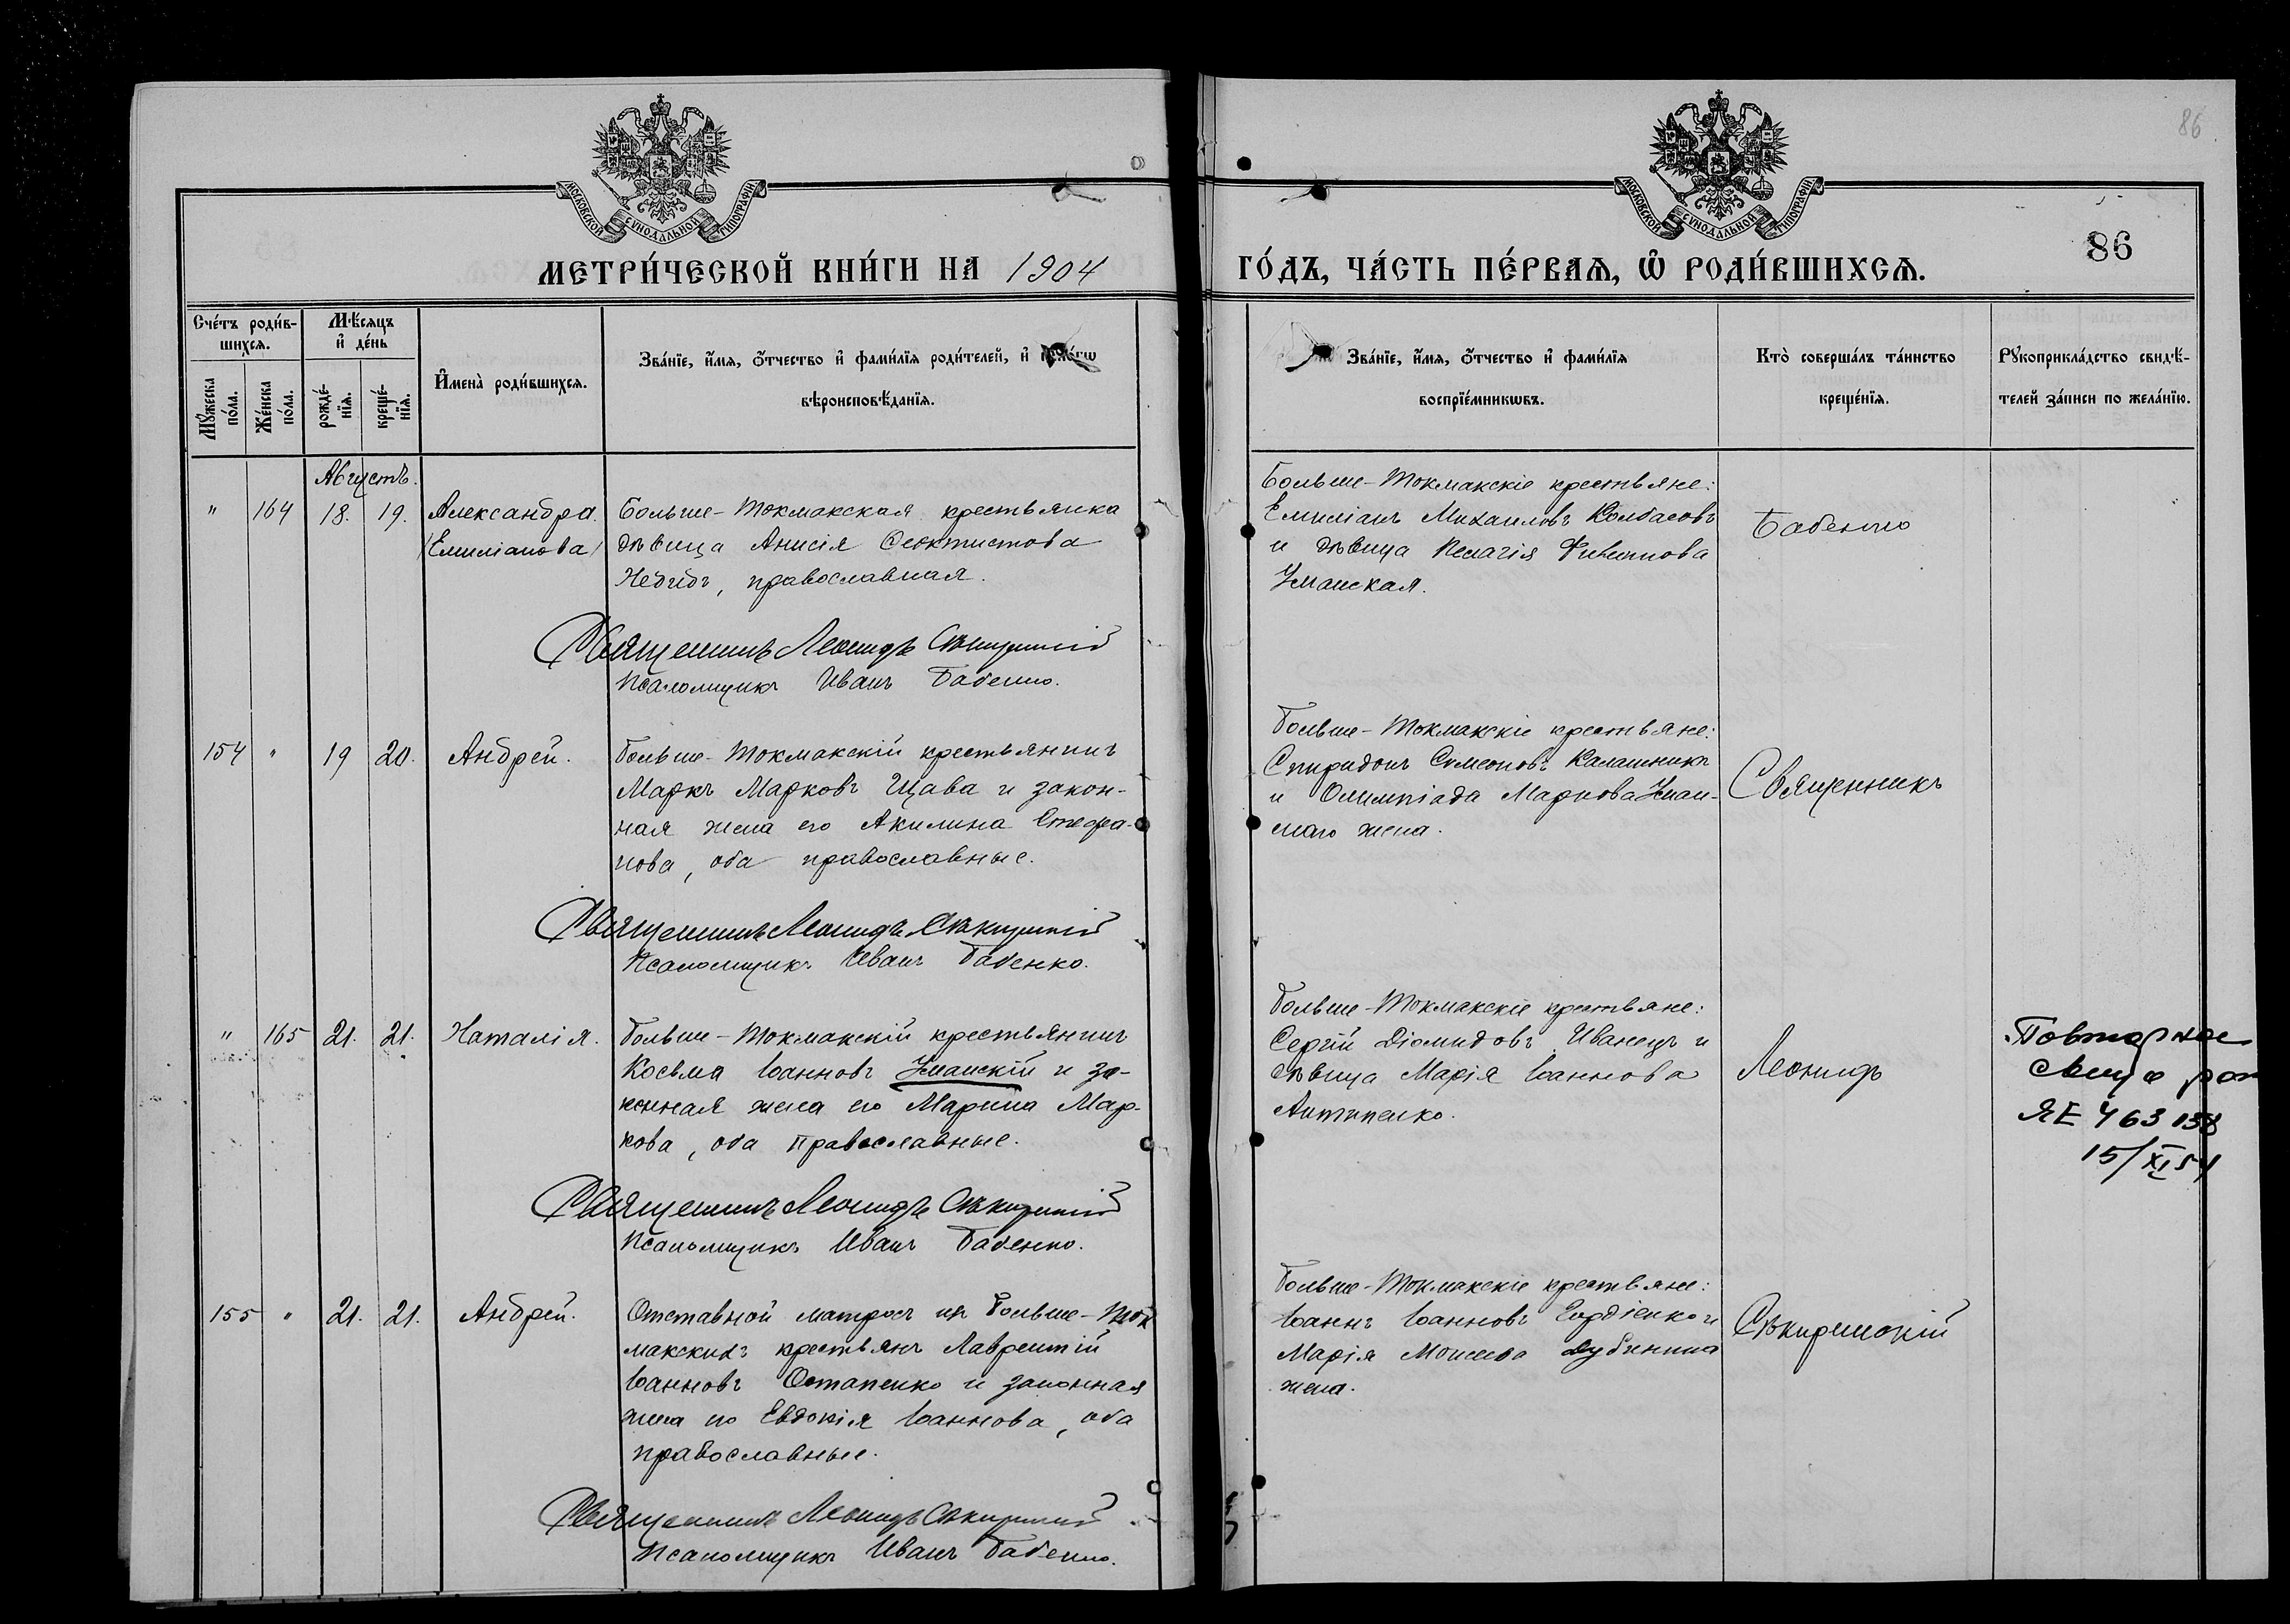 86
МОСКОВСКОЙ СУНОДАЛЬНОЙ ТИПОГРАФІИ
МОСКОВСКОЙ СУНОДАЛЬНОЙ ТИПОГРАФІИ
86
МЕТРИ́ЧЕСКОЙ КНИ́ГИ НА 1904
ГО́ДЪ, ЧА́СТЬ ПЕ́РВАЯ, Ѡ РОДИ́ВШИХСЯ.
Сче́тъ роди́в-
шихся.
Му́жеска по́ла.
Же́нска по́ла.
Мѣ́сяцъ
и де́нь
рожде́-
нія.
креще́-
нія.
Имена̀ роди́вшихся.
Зва́ніе, имя, о́тчество и фами́лія роди́телей, и
вѣроисповѣ́данія.
Зва́ніе, имя, о́тчество и фами́лія
воспріе́мникѡвъ.
Кто̀ соверша́лъ та́инство
креще́нія.
Рукоприкла́дство свидѣ́-
телей за́писи по жела́нію.
Августъ.
" 164 18. 19. Александра.
(Емиліанова)
Больше-Токмакская крестьянка
дѣвица Анисія Ѳеоктистова
Небидъ, православная.
Священникъ Леонидъ Сѣкиринскій
Псаломщикъ Иванъ Бабенко.
Больше-Токмакскіе крестьяне:
Емиліанъ Михаиловъ Колбасовъ
и дѣвица Пелагія Филиппова
Уманская.
Бабенко
154 " 19 20. Андрей.
Больше-Токмакскій крестьянинъ
Маркъ Марковъ Щава и закон-
ная жена его Акилина Стефа-
нова, оба православные.
Священникъ Леонидъ Сѣкиринскій
Псаломщикъ Иванъ Бабенко.
Больше-Токмакскіе крестьяне:
Спиридонъ Симеоновъ Калашникъ
и Олимпіада Маркова Уман-
скаго жена.
Священникъ
" 165 21. 21. Наталія.
Больше-Токмакскій крестьянинъ
Косьма Іоанновъ Уманскій и за-
конная жена его Марина Мар-
кова, оба православные.
Священникъ Леонидъ Сѣкиринскій
Псаломщикъ Иванъ Бабенко.
Больше-Токмакскіе крестьяне:
Сергій Діомидовъ Иванецъ и
дѣвица Марія Іоаннова
Антипенко.
Леонидъ
Повторное
ЯЕ 463 138
15/XI 54
155 " 21. 21. Андрей.
Отставной матросъ изъ Больше-Ток
макскихъ крестьянъ Лаврентій
Іоанновъ Остапенко и законная
жена его Евдокія Іоаннова, оба
православные.
Священникъ Леонидъ Сѣкиринскій
Псаломщикъ Иванъ Бабенко.
Больше-Токмакскіе крестьяне:
Іоаннъ Іоанновъ Гордіенко и
Марія Моисеева Дубинина
жена.
Сѣкиринскій